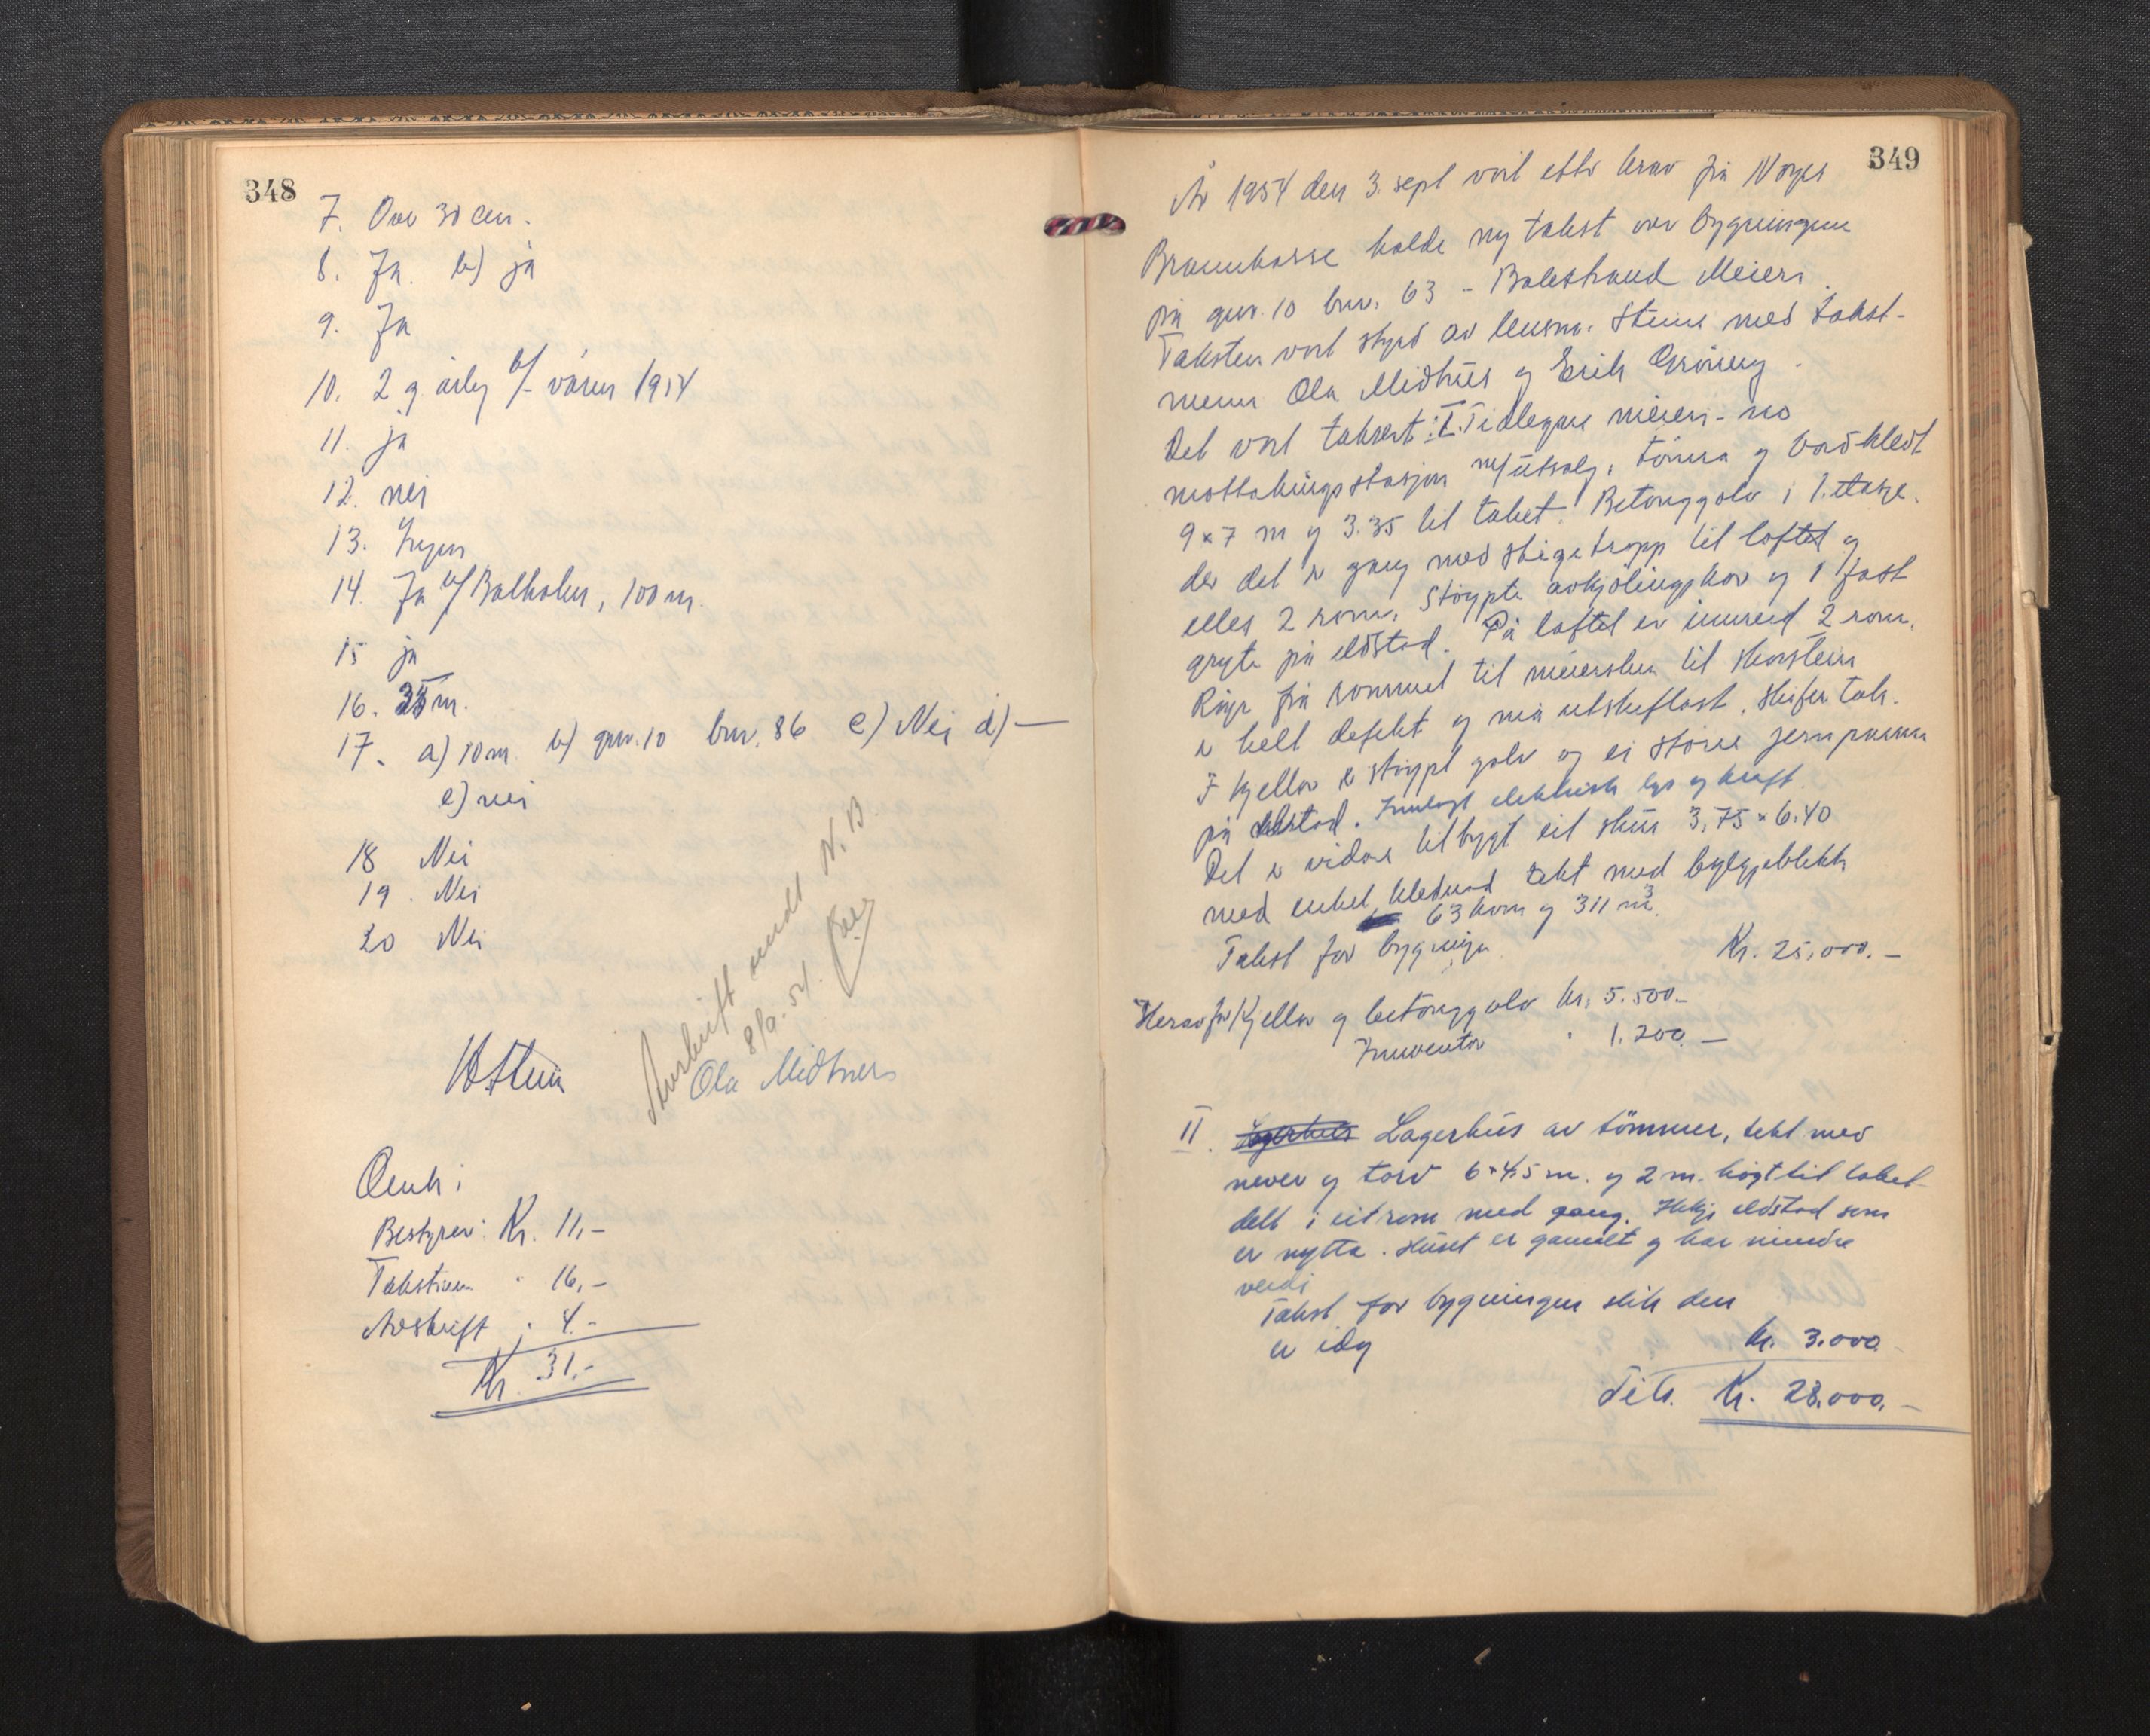 348
7. Over 30 cm.
8. Ja. b) ja
9. Ja
10. 2 g. årleg b/- våren 1954
11. ja
12. nei
13. Ingen
14. Ja b/ Balholm, 100 m.
15 ja
16. 35 m.
17. a) 10 m. b) gnr. 10 bnr. 86 c) Nei d) —
e) nei
18 Nei
19. Nei
20 Nei
Avskrift sendt N. B.
8/9. 54.
Ola Midtnes
Bestyrer: Kr. 11,-
Takstmenn " 16,-
Avskrift " 4.-
Kr. 31.-
349
År 1954 den 3. sept vart etter krav frå Norges
Brannkasse halde ny takst over bygningane
på gnr. 10 bnr. 63 - Balestrand Meieri.
Taksten vart styrd av lensm. Steine med takst-
menn Ola Midtnes og Erik Grøneng.
Det vart taksert: I. Tidlegare meieri - no
mottakingsstasjon m/utsalg, tømra og bordkledt
9 x 7 m og 3.35 til taket. Betonggolv i 1. etasje.
der det er gang med stigetrapp til loftet og
elles 2 rom. Støypte avkjølingskar og 1 fast
gryte på eldstad. På loftet er innreid 2 rom.
Røyr frå rommet til meiersken til skorstein
er helt defekt og må utskiftast. Skifertak.
I kjellar er støypt golv og ei större jernpanna
på eldstad. Innlagt elektrisk lys og kraft.
Det er vidare tilbygt eit skur 3,75 x 6.40
med enkel kledned tekt med bylgjeblekk
63 kvm og 311 m³.
Takst for bygninga Kr. 25.000.-
Herav for kjellar og betonggolv kr. 5.500.-
Inventar " 1.200.-
II. Lagerhus Lagerhus av tömmer, tekt med
never og torv 6 x 4,5 m. og 2 m. høgt til taket
delt i eit rom med gang. Ikkje eldstad som
er nytta. Huset er gamalt og har mindre
verdi
Takst for bygningen slik den
er idag kr. 3.000.
Tils. Kr. 28.000.-